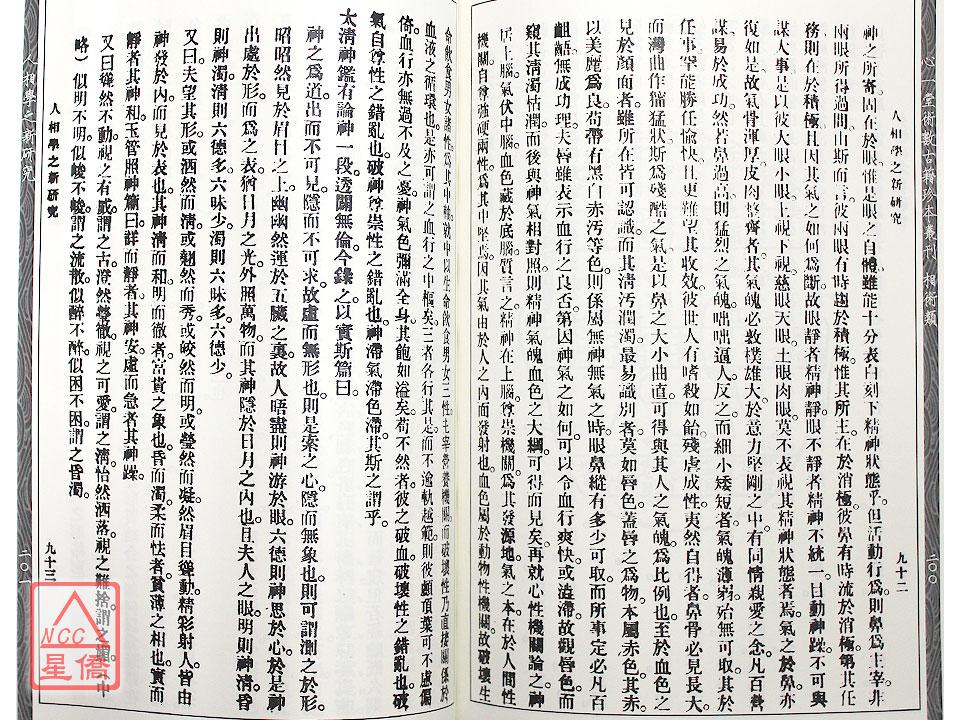 心一堂術數古籍珍本叢刊 相術類
二〇〇
人相學之新研究
九十二
神之所寄固在於眼惟是眼之自體雖能十分表白刻下精神狀態乎但活動行爲則鼻爲主宰非
兩眼所得過問由斯而言彼兩眼有時趨於積極惟其所主在於消極彼鼻有時流於消極第其任
務則在於積極且因其氣之如何爲斷故眼靜者精神靜眼不靜者精神不統一目動神躁不可與
謀大事足以彼大眼小眼上視下視慈眼天眼土眼肉眼莫不表視其精神狀態者焉氣之於鼻亦
復如是故氣骨渾厚皮肉整齊者其氣魄必敦樸雄大於意力堅剛之中有同情親愛之念凡百營
謀易于成功然若鼻過高則猛烈之氣魄咄咄逼人反之而細小矮短者氣魄薄弱殆無可取其於
任事罕能勝任愉快且更難望其收效彼世人有嗜殺如飴殘虐成性夷然自得者鼻骨必見長大
而灣曲作猛獰狀斯爲殘酷之氣是以鼻之大小曲直可得與其人之氣魄爲比例也至於血色之
見於顏面者雖所在皆可認識而其清汚潤濁最易識別者莫如唇色蓋唇之爲物本屬赤色其赤
以美麗爲良苟帶有黑白赤汚等色則係屬無神無氣之時眼鼻縱有多少可取而所事定必凡百
齟齬無成功理夫唇雖表示血行之良否第因神氣之如何可以令血行爽快或澁滯故觀唇色而
窺其清濁枯潤而後與神氣相對照則精神氣魄血色之大綱可得而見矣再就心性機關論之神
居上腦氣伏中腦血色藏於底腦質言之精神在上腦尊崇機關爲其發源地氣之本在於人間性
機關自尊強硬兩性爲其中堅焉因其氣由於人之內面而發射也血色屬於動物性機關故破壞生
命飲食男女諸性爲其中軸就中以生命飲食男女三性主宰營養機關而破壞性乃直接關係於
血液之循環也是亦可謂之血行之中樞矣三者各行其是而不逾軌越範則彼顱頂葉可不虞偏
倚血行亦無過不及之憂神氣色彌滿全身其飽如溢矣苟不然者彼之破血破壞性之錯亂也破
氣自尊性之錯亂也破神尊崇性之錯亂也神滯氣滯色滯其斯之謂乎
太清神鑑有論神一段透闢無倫今錄之以實斯篇曰
神之爲道出而不可見隱而不可求故虛而無形也則是索之心隱而無象也則可謂測之於形
昭昭然見於眉目之上幽幽然運於五臟之裏故人晤盡則神游於眼六德則神思於心於是神
出處於形而爲之表猶日月之光外照萬物而其神隱於日月之內也且夫人之眼明則神清昏
則神濁清則六德多六昧少濁則六昧多六德少
又曰夫望其形或洒然而清或翹然而秀或皎然而明或瑩然而凝然眉目聳動精彩射人皆由
神發於內而見於表也其神清而和明而徹者富貴之象也昏而濁柔而怯者貧薄之相也實而
靜者其神和玉管照神篇曰詳而靜者其神安虛而急者其神躁
又曰聳然不動視之有威謂之古澄然瑩徹視之可愛謂之清怡然洒落視之難捨謂之媚（中
略）似明不明似峻不峻謂之流散似醉不醉似困不困謂之昏濁
人相學之新研究
九十三
人相學之新研究
二〇一
NCC
星僑